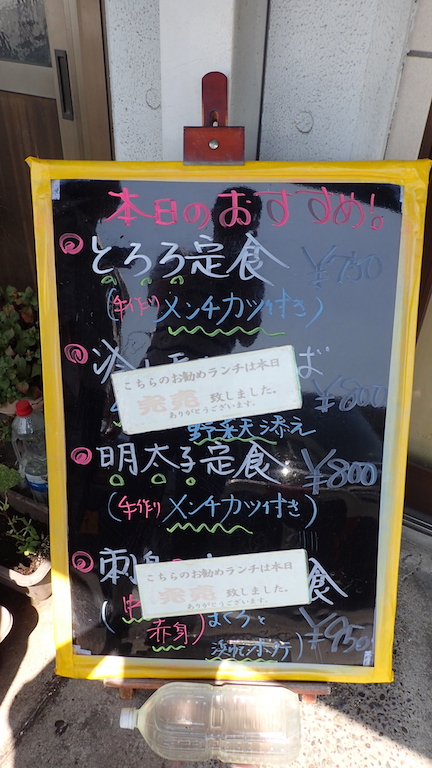 本日のおすすめ!
とろろ定食 ¥750
(手作りメンチカツ付き)
冷し ば ¥800
こちらのお勧めランチは本日
完売 致しました。
ありがとうございます。
野菜天添え
明太子定食 ¥800
(手作りメンチカツ付き)
刺 食
こちらのお勧めランチは本日
完売 致しました。
ありがとうございます。
赤身)まぐろと
¥950